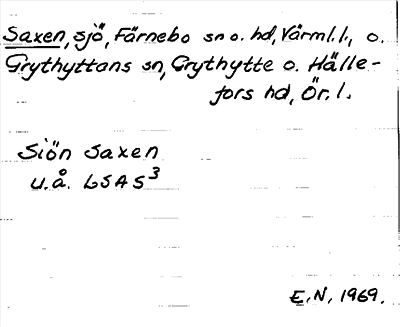 Saxen, sjö, Färnebo sn o. hd, Värml. l., o.
Grythyttans sn, Grythytte o. Hälle-
fors hd, Ör. l.
Siön Saxen
u.å. LSAS³
E.N. 1969.